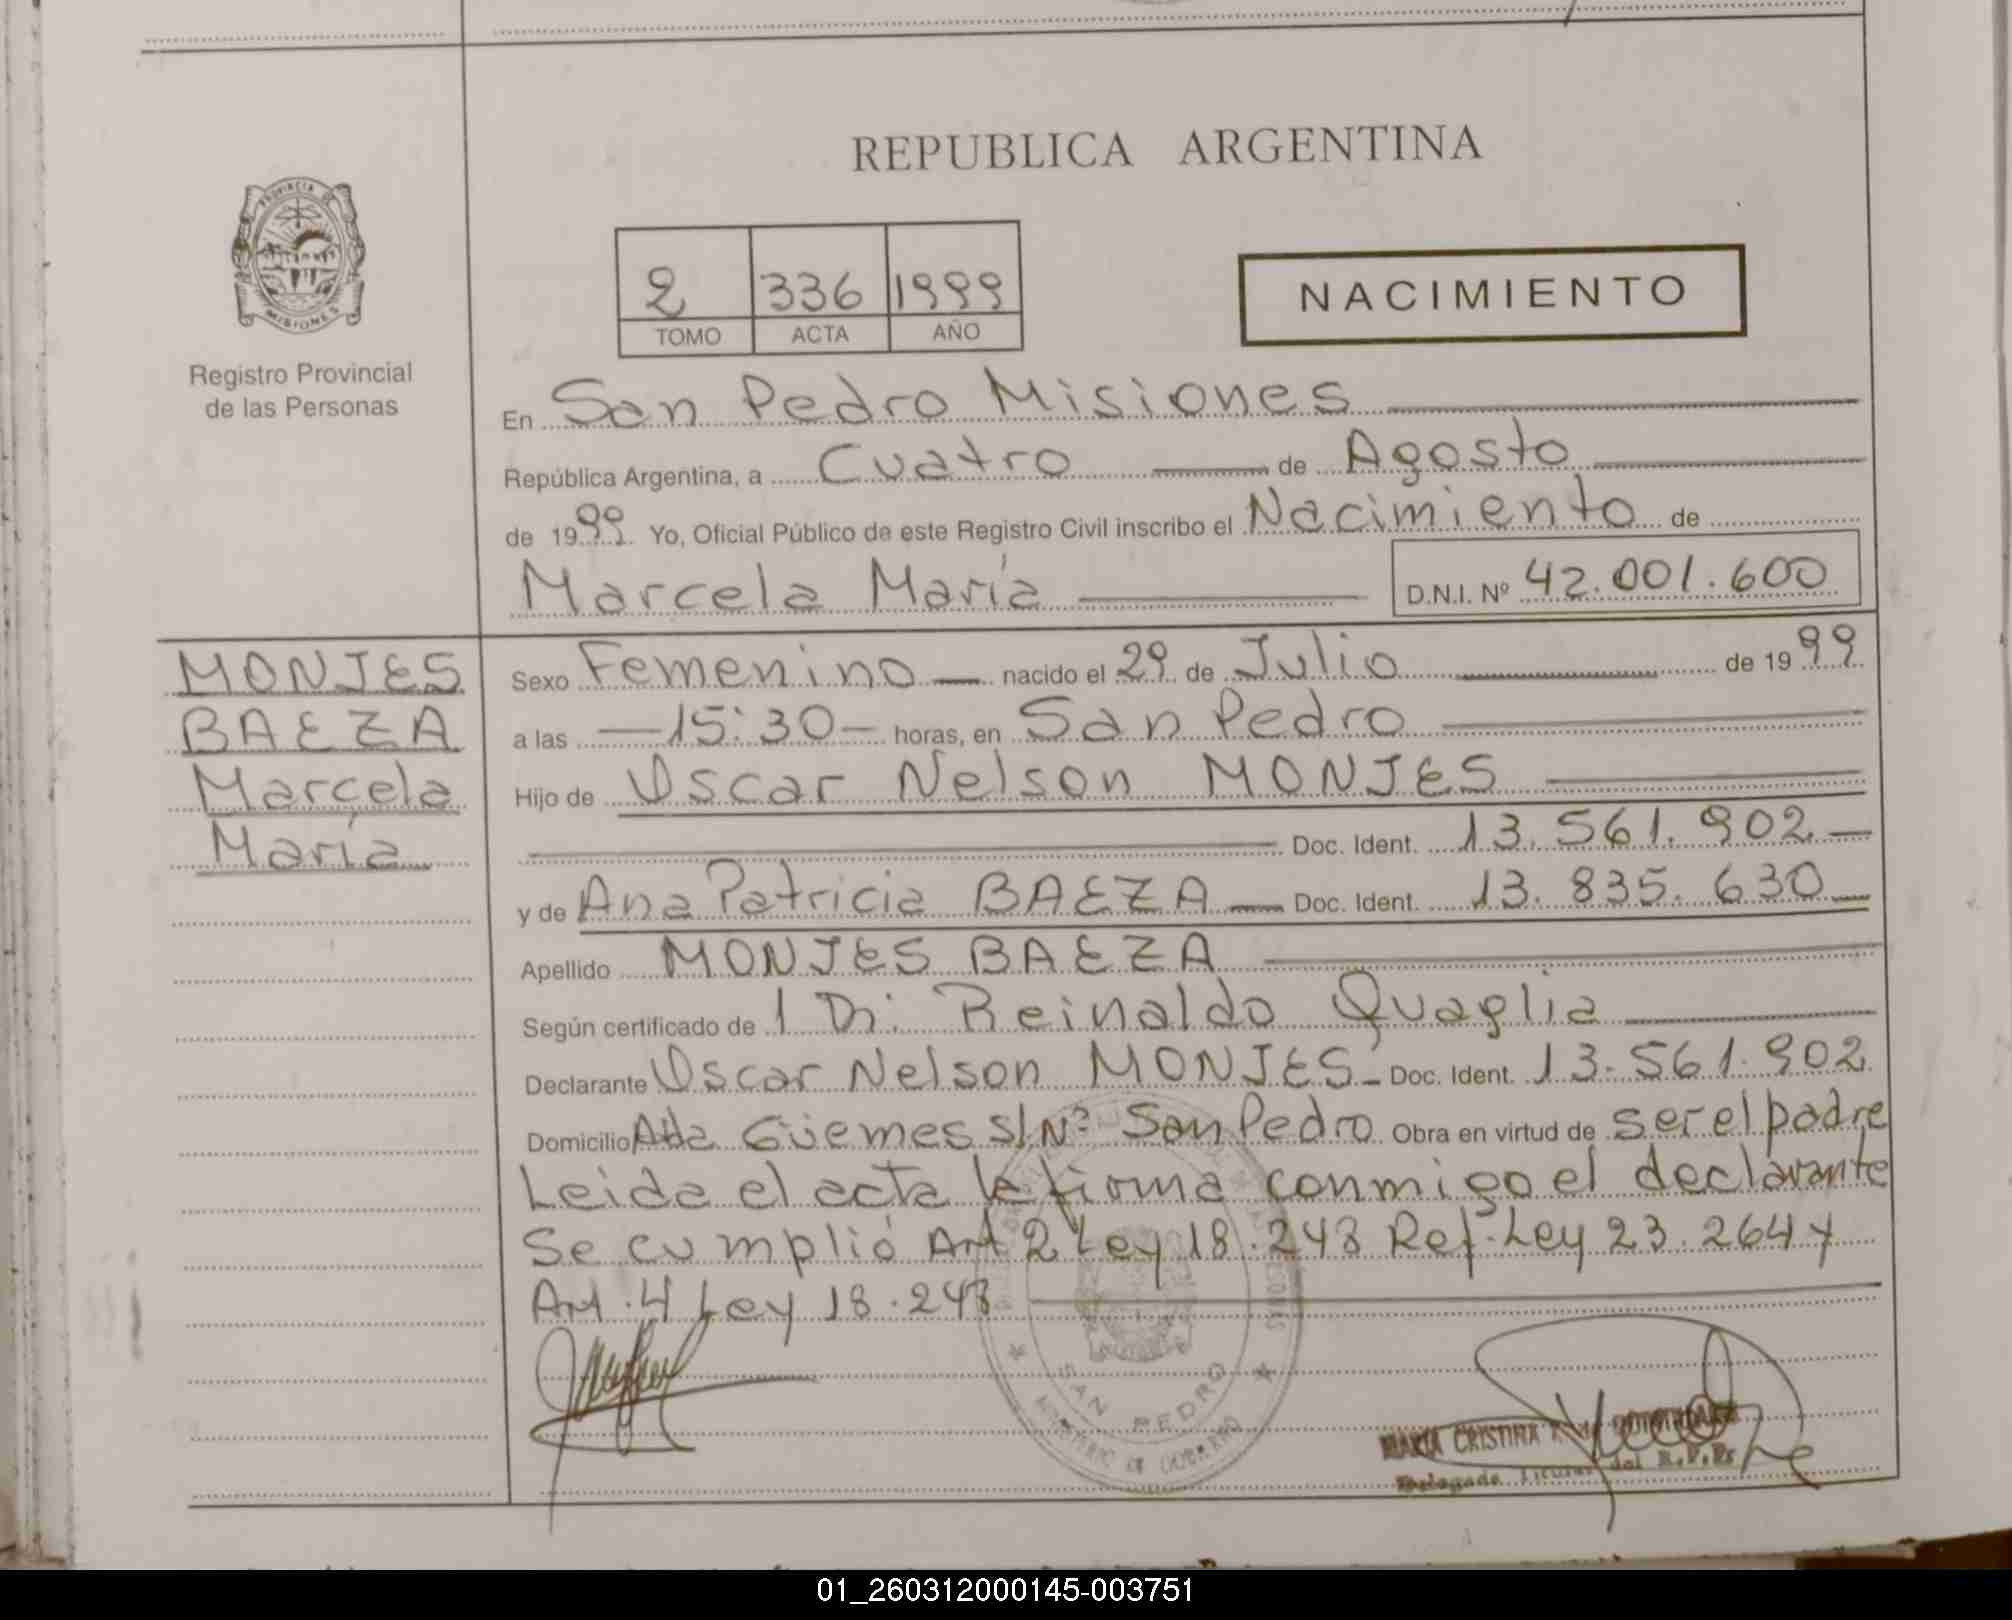 REPUBLICA ARGENTINA
PROVINCIA DE
MISIONES
Registro Provincial
de las Personas
2 336 1999
TOMO ACTA AÑO
NACIMIENTO
En San Pedro Misiones
República Argentina, a Cuatro de Agosto
de 1999 Yo, Oficial Público de este Registro Civil inscribo el Nacimiento de
Marcela María D.N.I. Nº 42.001.600
MONJES
BAEZA
Marcela
María
Sexo Femenino nacido el 29 de Julio de 1999
a las —15:30— horas, en San Pedro
Hijo de Oscar Nelson MONJES
Doc. Ident. 13.561.902
y de Ana Patricia BAEZA Doc. Ident. 13.835.630
Apellido MONJES BAEZA
Según certificado de Reinaldo Quaglia
Declarante Oscar Nelson MONJES Doc. Ident. 13.561.902
Domicilio Güemes S/Nº San Pedro Obra en virtud de ser el padre
Leida el acta la firma conmigo el declarante
Se cumplió Art 2 Ley 18.248 Ref. Ley 23.264 y
Art. 4 Ley 18.248
SAN PEDRO
MINISTERIO DE GOBIERNO
MARIA CRISTINA
Delegada Titular del R.P.Ps
01_260312000145-003751